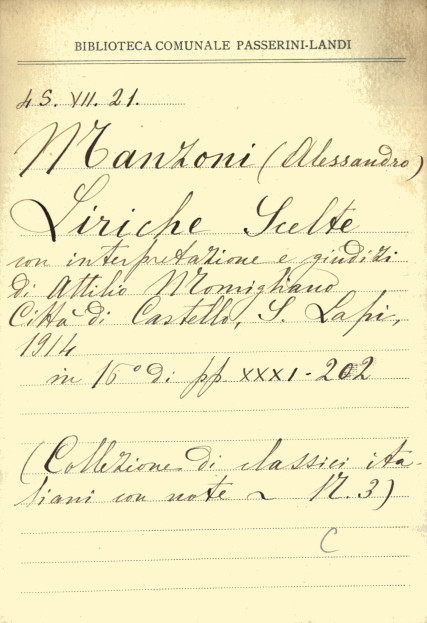 BIBLIOTECA COMUNALE PASSERINI-LANDI
4S. VII. 21.
Manzoni (Alessandro)
Liriche Scelte
con interpretazione e giudizi
di Attilio Momigliano
Città di Castello, S. Lapi,
1914
in 16° di pp XXXI-202
(Collezione di classici ita-
liani con note ~ N. 3)
C